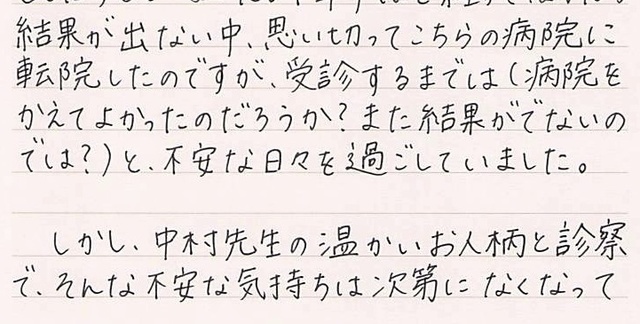 結果が出ない中、思い切ってこちらの病院に
転院したのですが、受診するまでは(病院を
かえてよかったのだろうか?また結果がでないの
では?)と、不安な日々を過ごしていました。
しかし、中村先生の温かいお人柄と診察
で、そんな不安な気持ちは次第になくなって